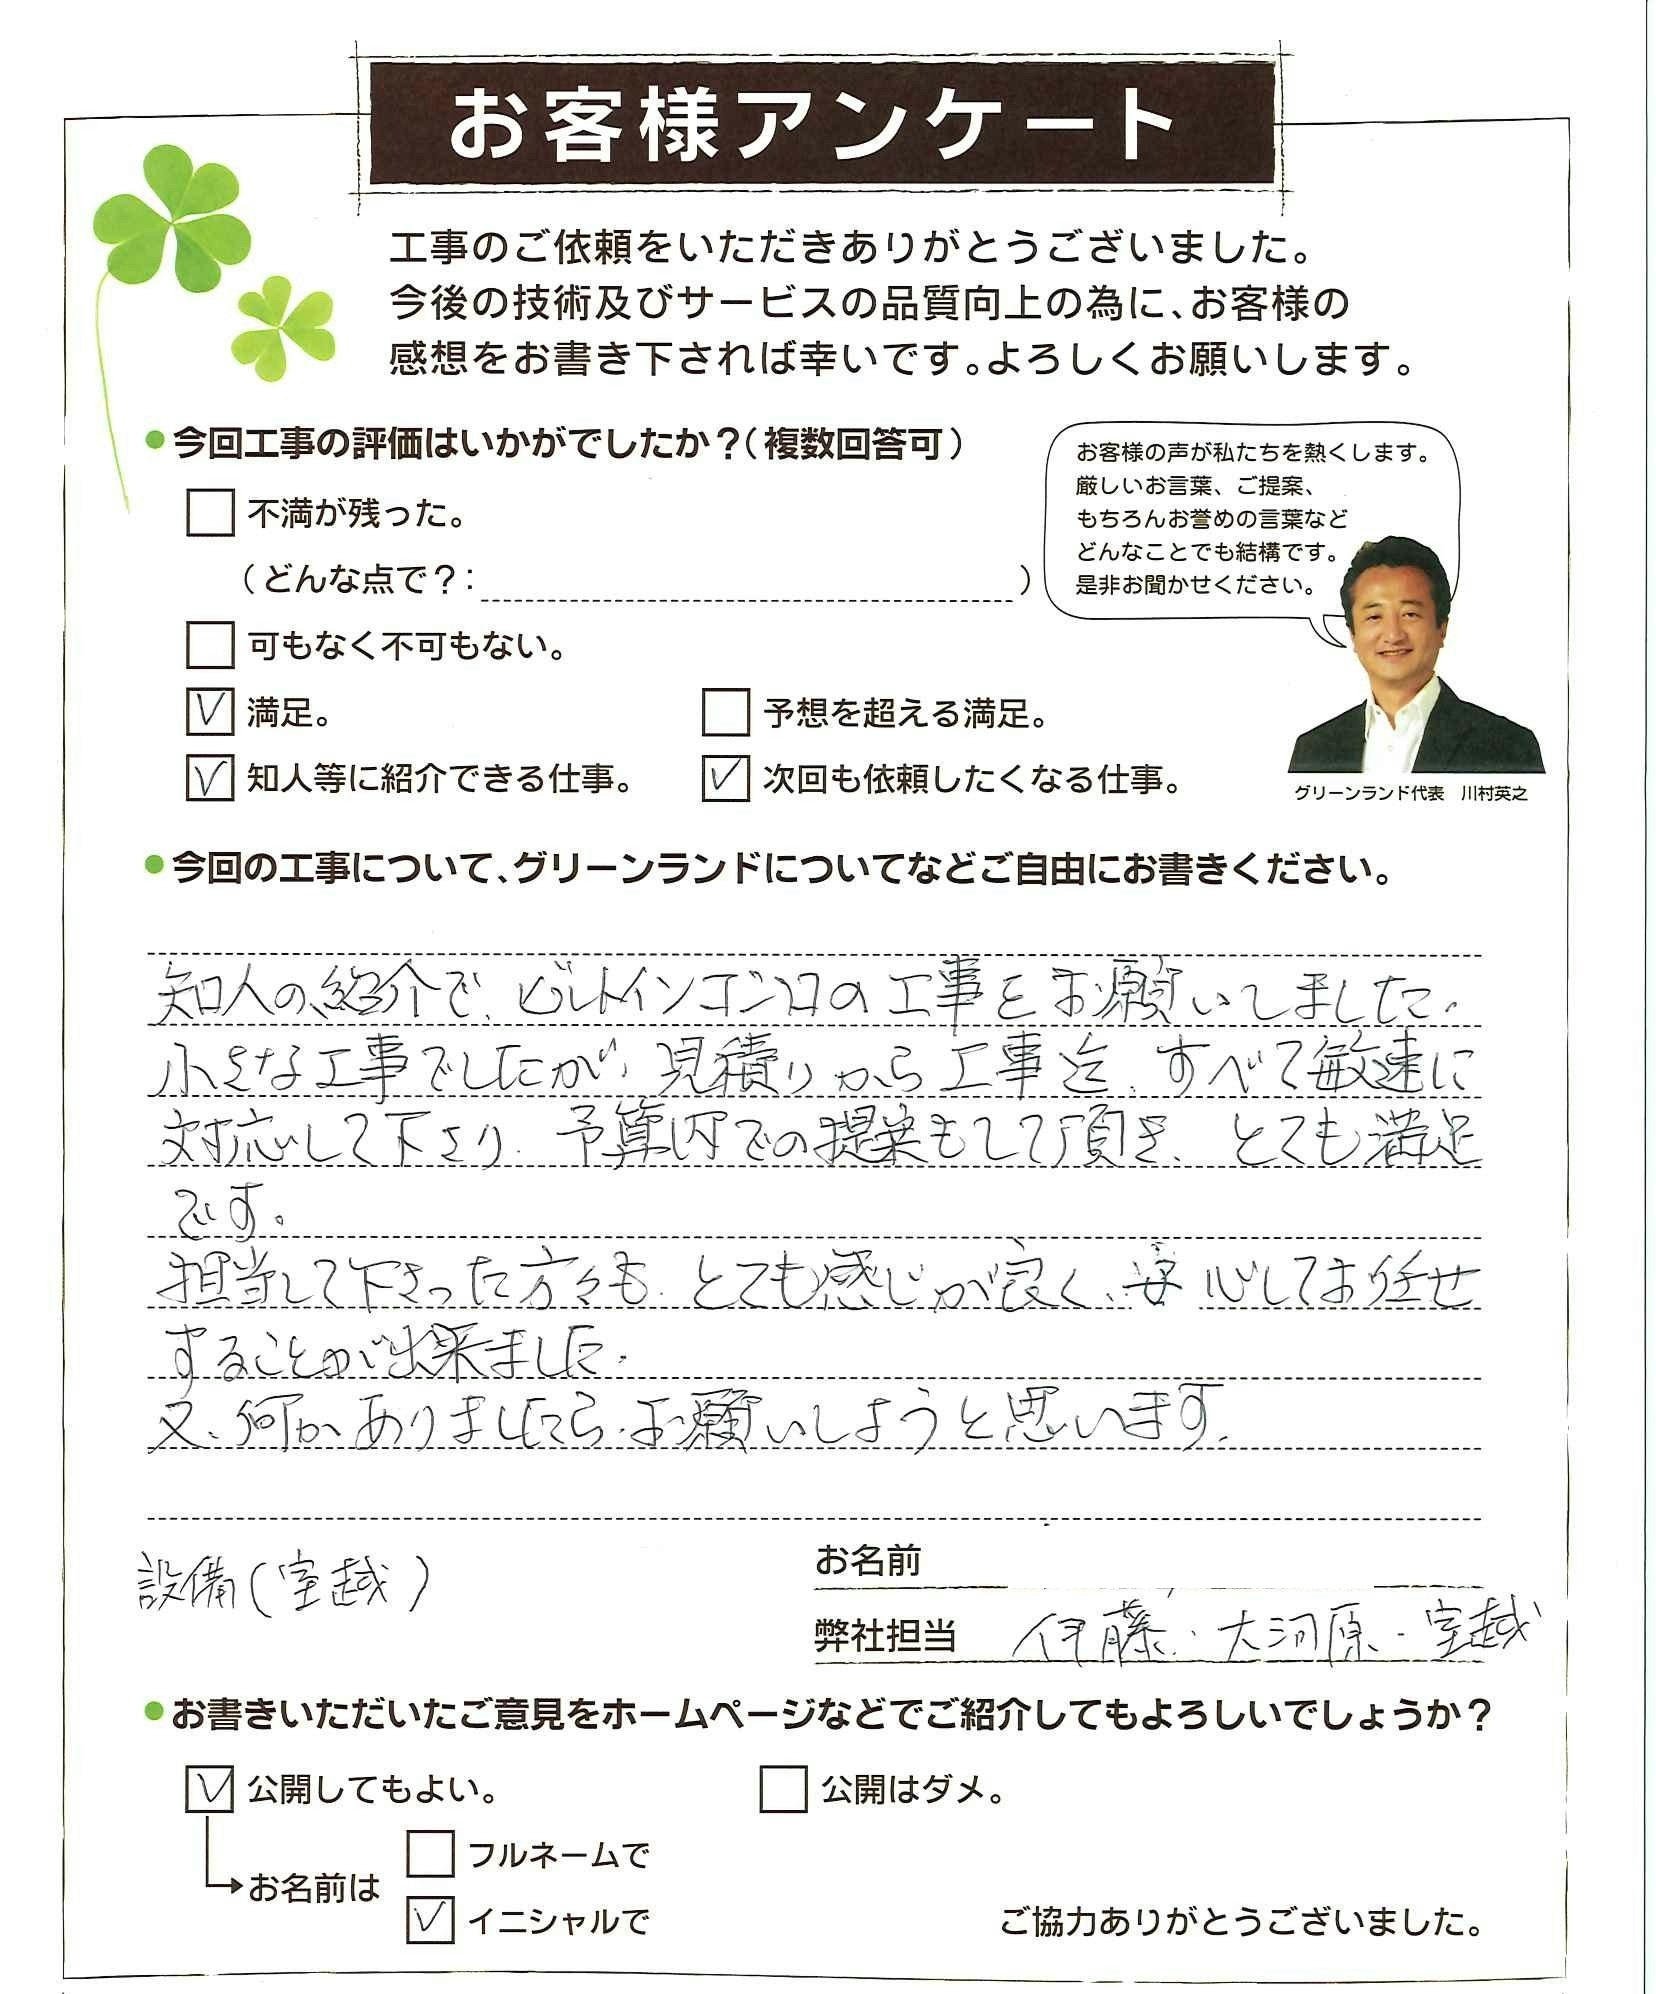 お客様アンケート
工事のご依頼をいただきありがとうございました。
今後の技術及びサービスの品質向上の為に、お客様の
感想をお書き下されば幸いです。よろしくお願いします。
●今回工事の評価はいかがでしたか？（複数回答可）
不満が残った。
（どんな点で？：　）
可もなく不可もない。
満足。
予想を超える満足。
知人等に紹介できる仕事。
次回も依頼したくなる仕事。
お客様の声が私たちを熱くします。
厳しいお言葉、ご提案、
もちろんお誉めの言葉など
どんなことでも結構です。
是非お聞かせください。
グリーンランド代表　川村英之
●今回の工事について、グリーンランドについてなどご自由にお書きください。
知人の紹介で、ビルトインコンロの工事をお願いしました。
小さな工事でしたが、見積りから工事迄、すべて敏速に
対応して下さり、予算内での提案もして頂き、とても満足
です。
担当して下さった方々も、とても感じが良く、安心してお任せ
することが出来ました。
又、何かありましたら、お願いしようと思います。
設備(室越)
お名前
弊社担当　伊藤・大河原・室越
●お書きいただいたご意見をホームページなどでご紹介してもよろしいでしょうか？
公開してもよい。
公開はダメ。
お名前は
フルネームで
イニシャルで
ご協力ありがとうございました。